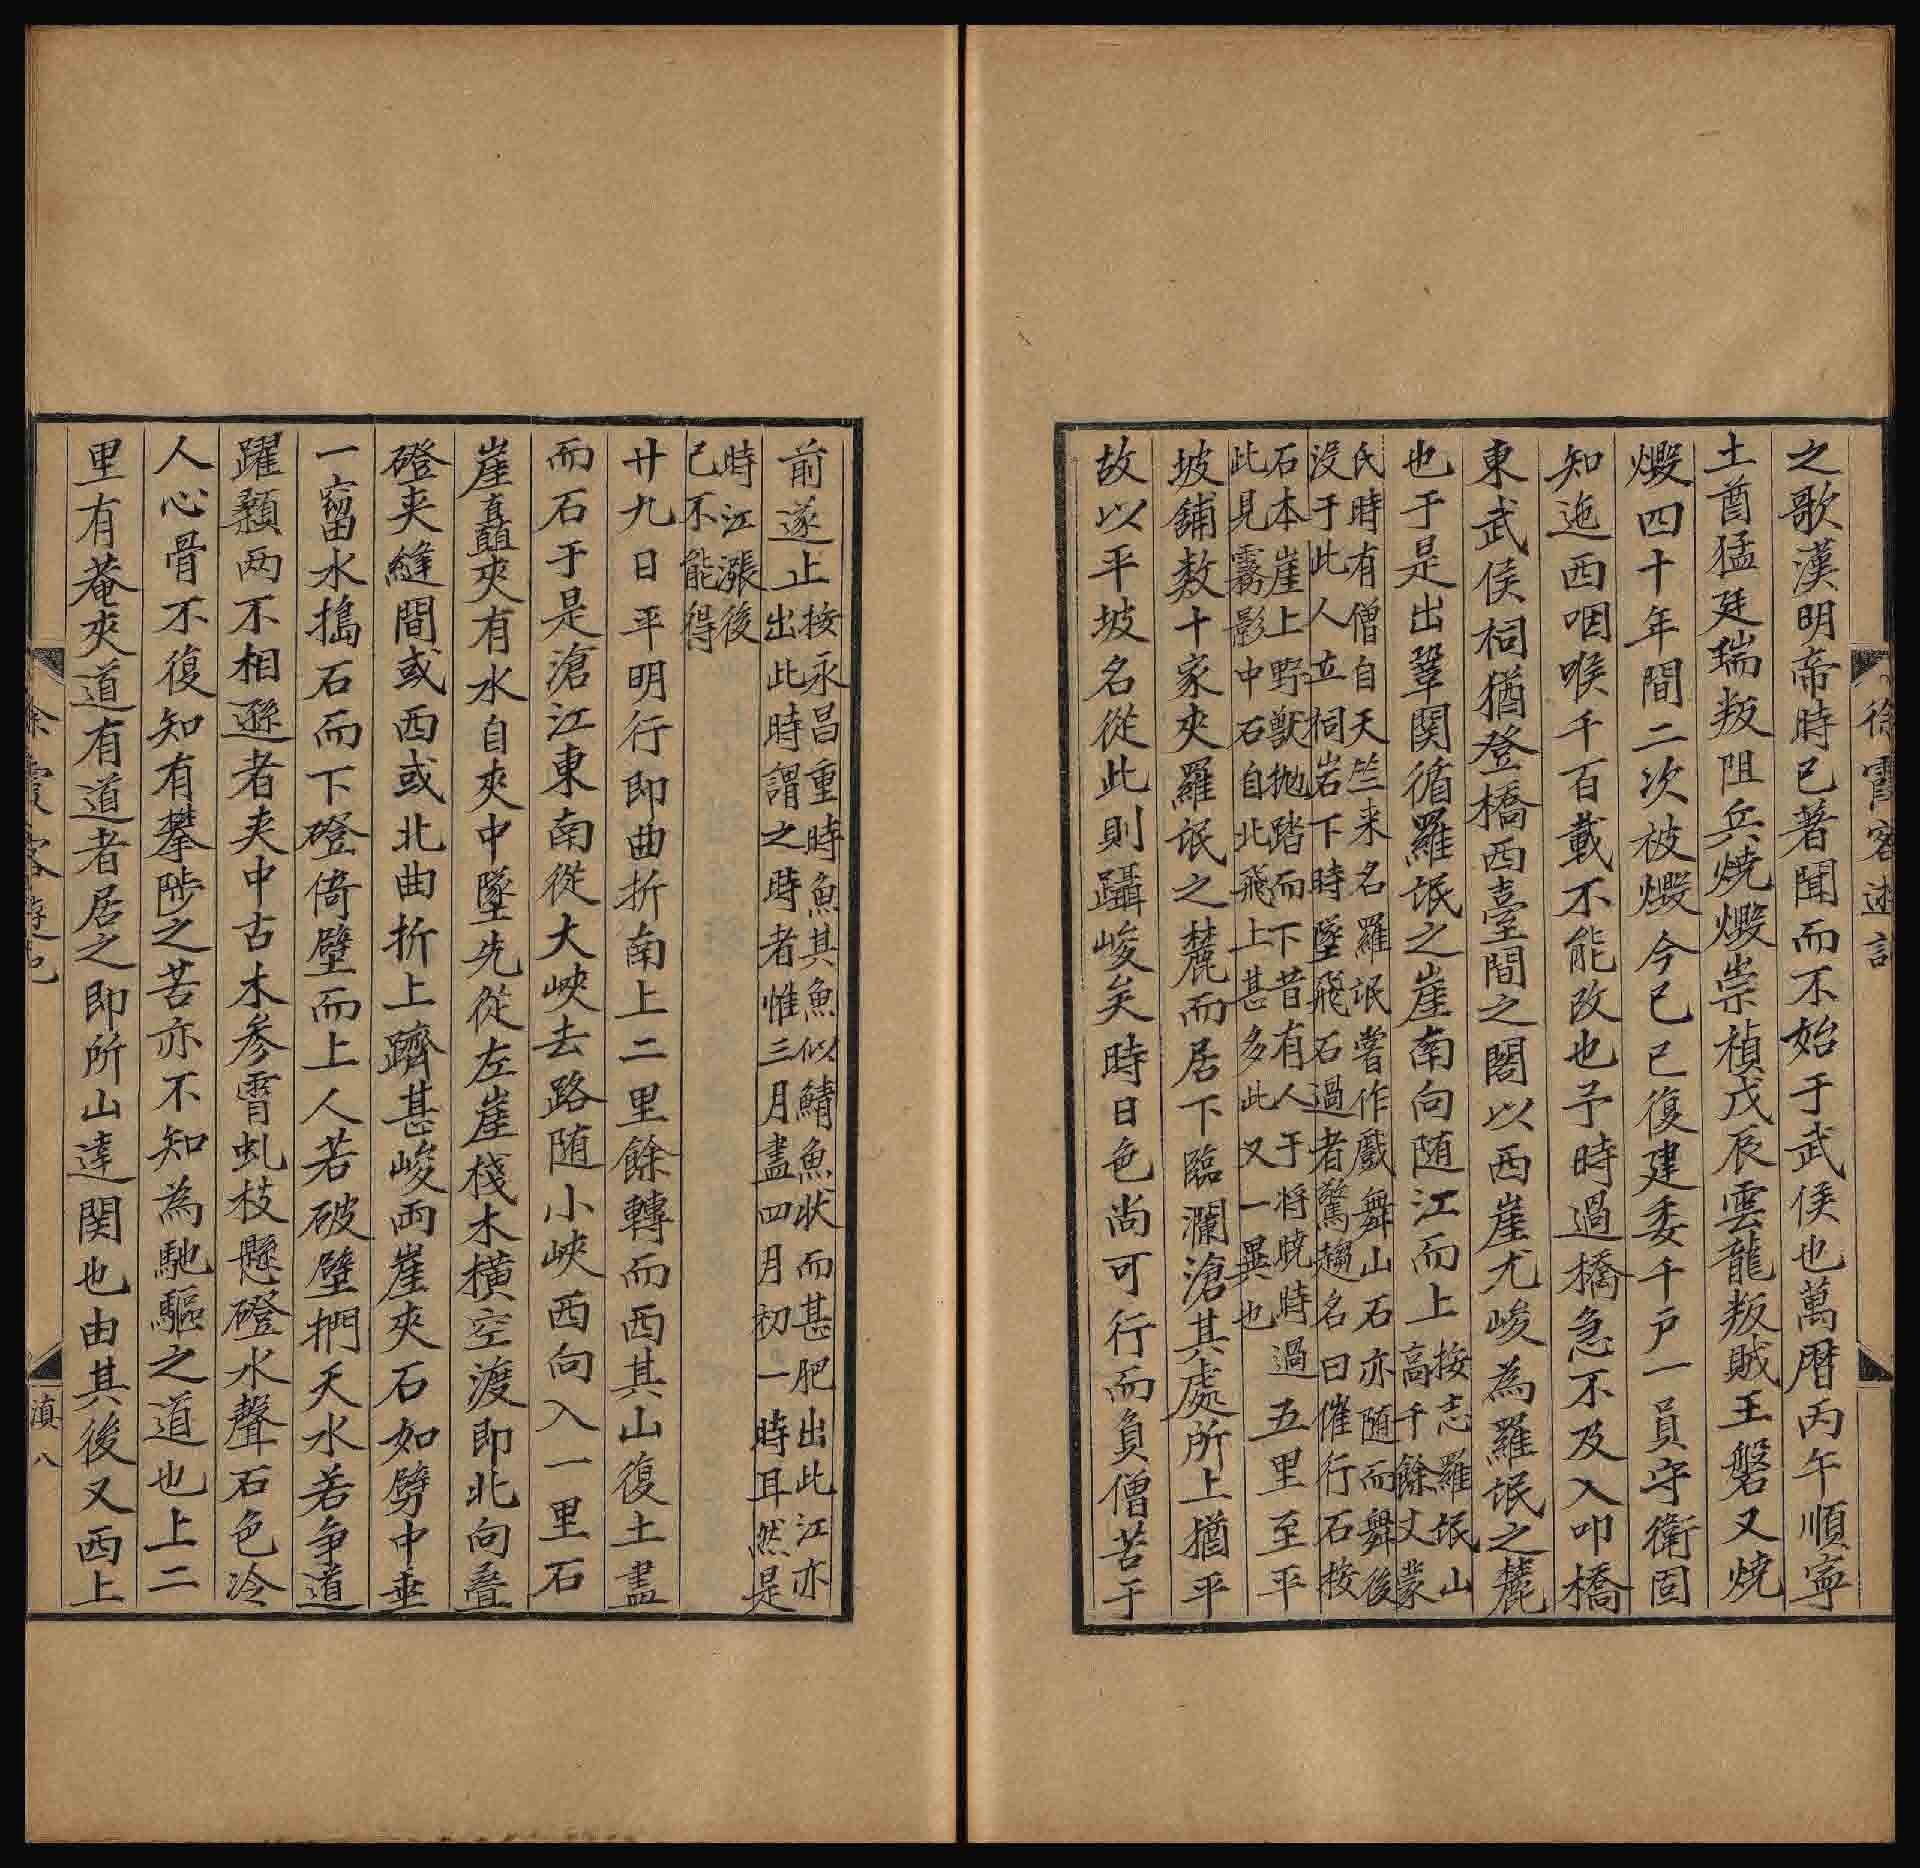 徐霞客遊記
之歌漢明帝時已著聞而不始于武侯也萬暦丙午順寧
土酋猛廷瑞叛阻兵燒燬崇禎戊辰雲龍叛賊王磐又燒
燬四十年間二次被燬今已已復建委千戶一員守衛固
知迤西咽喉千百載不能改也予時過橋急不及入叩橋
東武侯祠猶登橋西臺間之閣以西崖尤峻為羅岷之麓
也于是出鞏関循羅岷之崖南向随江而上
按志羅岷山
高千餘丈蒙
氏時有僧自天竺来名羅岷嘗作戲舞山石亦随而舞後
没于此人立祠岩下時墜飛石過者驚趨名曰催行石按
石本崖上野獸抛踏而下昔有人于将曉時過
此見霧影中石自北飛上甚多此又一異也
五里至平
坡舖数十家夾羅岷之麓而居下臨瀾滄其處所上猶平
故以平坡名從此則躡峻矣時日色尚可行而負僧苦于
前遂止
按永昌重時魚其魚似鯖魚状而甚肥出此江亦
出此時謂之時者惟三月盡四月初一時耳然是
時江漲後
已不能得
廿九日平明行即曲折南上二里餘轉而西其山復土盡
而石于是滄江東南從大峽去路随小峽西向入一里石
崖矗夾有水自夾中墜先從左崖棧木横空渡即北向叠
磴夾縫間或西或北曲折上躋甚峻兩崖夾石如劈中垂
一霤水搗石而下磴倚壁而上人若破壁捫天水若争道
躍顙两不相遜者夾中古木參霄虬枝懸磴水聲石色冷
人心骨不復知有攀陟之苦亦不知為馳驅之道也上二
里有菴夾道有道者居之即所山達関也由其後又西上
徐霞客遊記
滇八